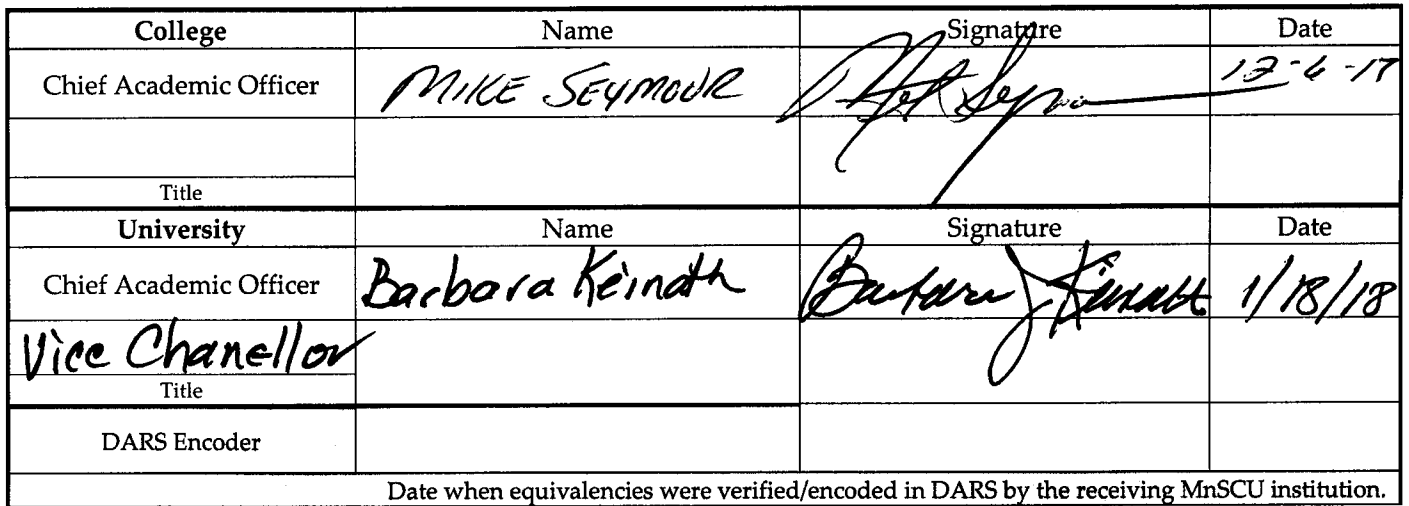 College Name Signature Date
Chief Academic Officer MIKE SEYMOUR 12-6-17
Title
University Name Signature Date
Chief Academic Officer Barbara Keinath Barbara J Keinath 1/18/18
Vice Chanellor
Title
DARS Encoder
Date when equivalencies were verified/encoded in DARS by the receiving MnSCU institution.